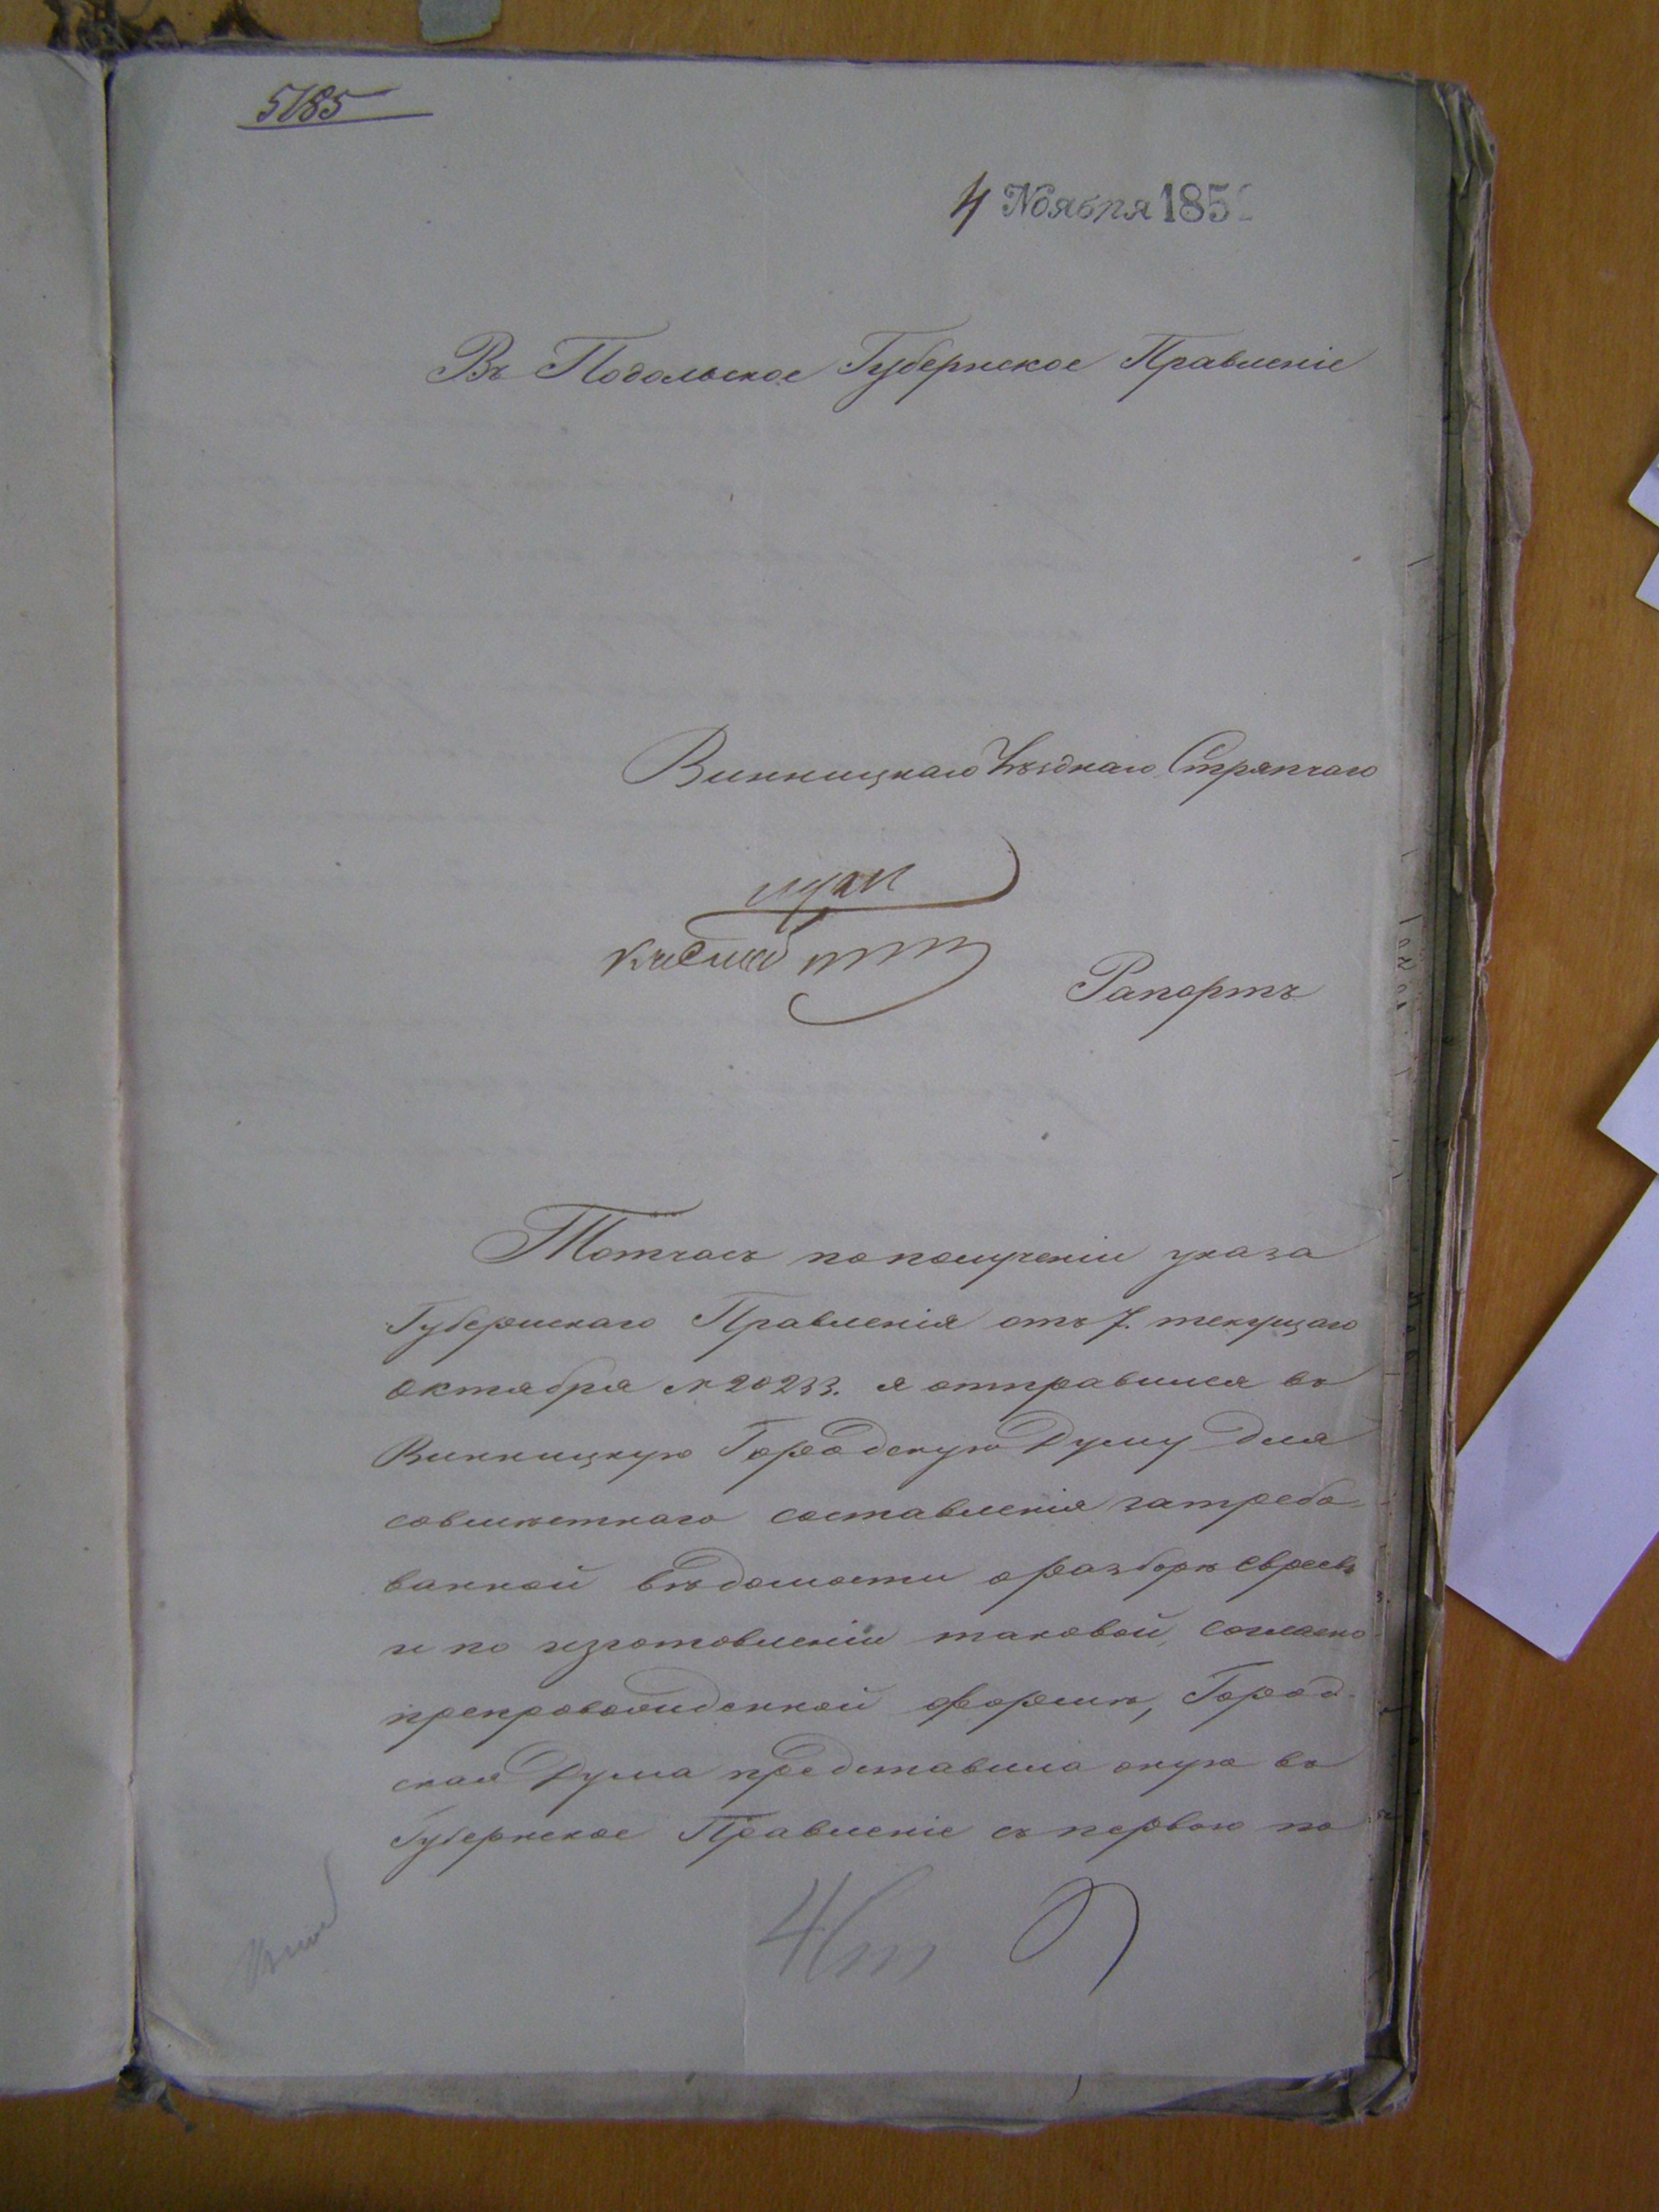 5185
4 Ноября 185
Въ Подольское Губернское Правленіе
Винницкаго Уѣзднаго Стряпчаго
Рапортъ
Тотчасъ по полученіи указа
Губернскаго Правленія отъ 7. текущаго
Октября № 20233. я отправился въ
Винницкую Городскую Думу для
совмѣстнаго составленія затребо-
ванной вѣдомости о разборѣ евреевъ
и по изготовленіи таковой, согласно
препровожденной формѣ, Город-
ская Дума представила оную въ
Губернское Правленіе съ первою по